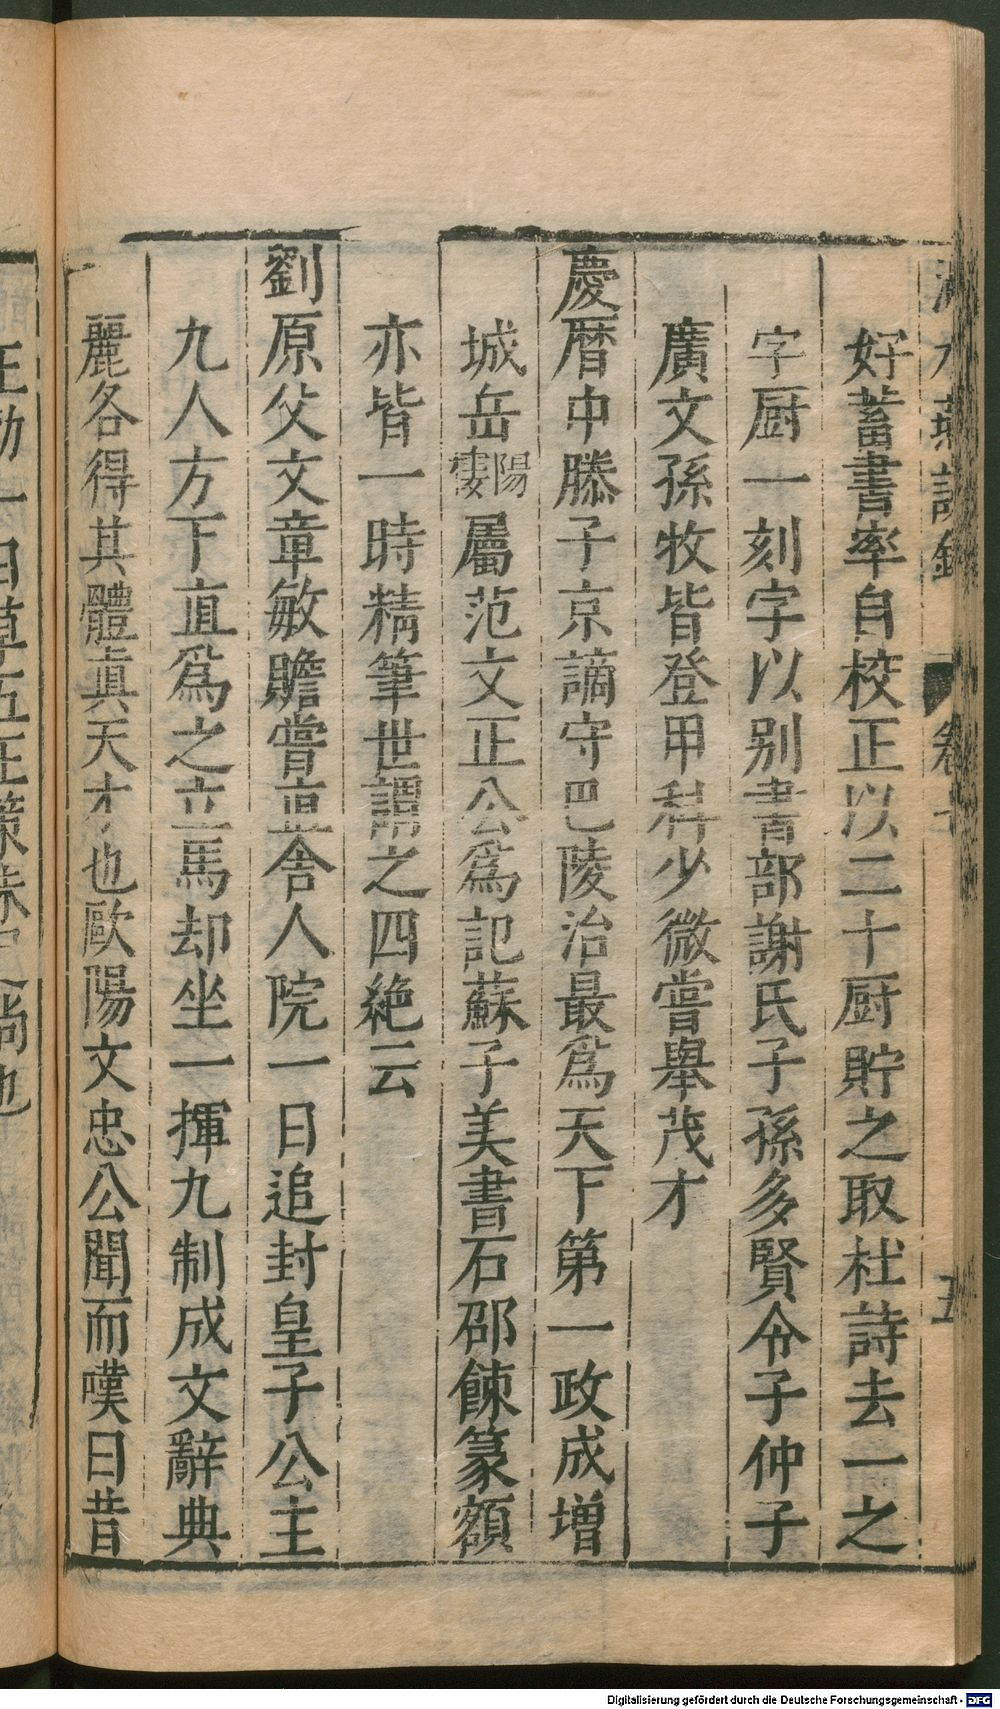 澠水燕談錄 卷七 五
好蓄書率自校正以二十厨貯之取杜詩去一之
字厨一刻字以别書部謝氏子孫多賢令子仲子
廣文孫牧皆登甲科少微嘗舉茂才
慶曆中滕子京謫守巴陵治最爲天下第一政成增
城岳陽樓屬范文正公爲記蘇子美書石邵餗篆額
亦皆一時精筆世謂之四絶云
劉原父文章敏贍嘗直舍人院一日追封皇子公主
九人方下直爲之立馬却坐一揮九制成文辭典
麗各得其體真天才也歐陽文忠公聞而嘆曰昔
王勃一日草五王策
也
Digitalisierung gefördert durch die Deutsche Forschungsgemeinschaft - DFG